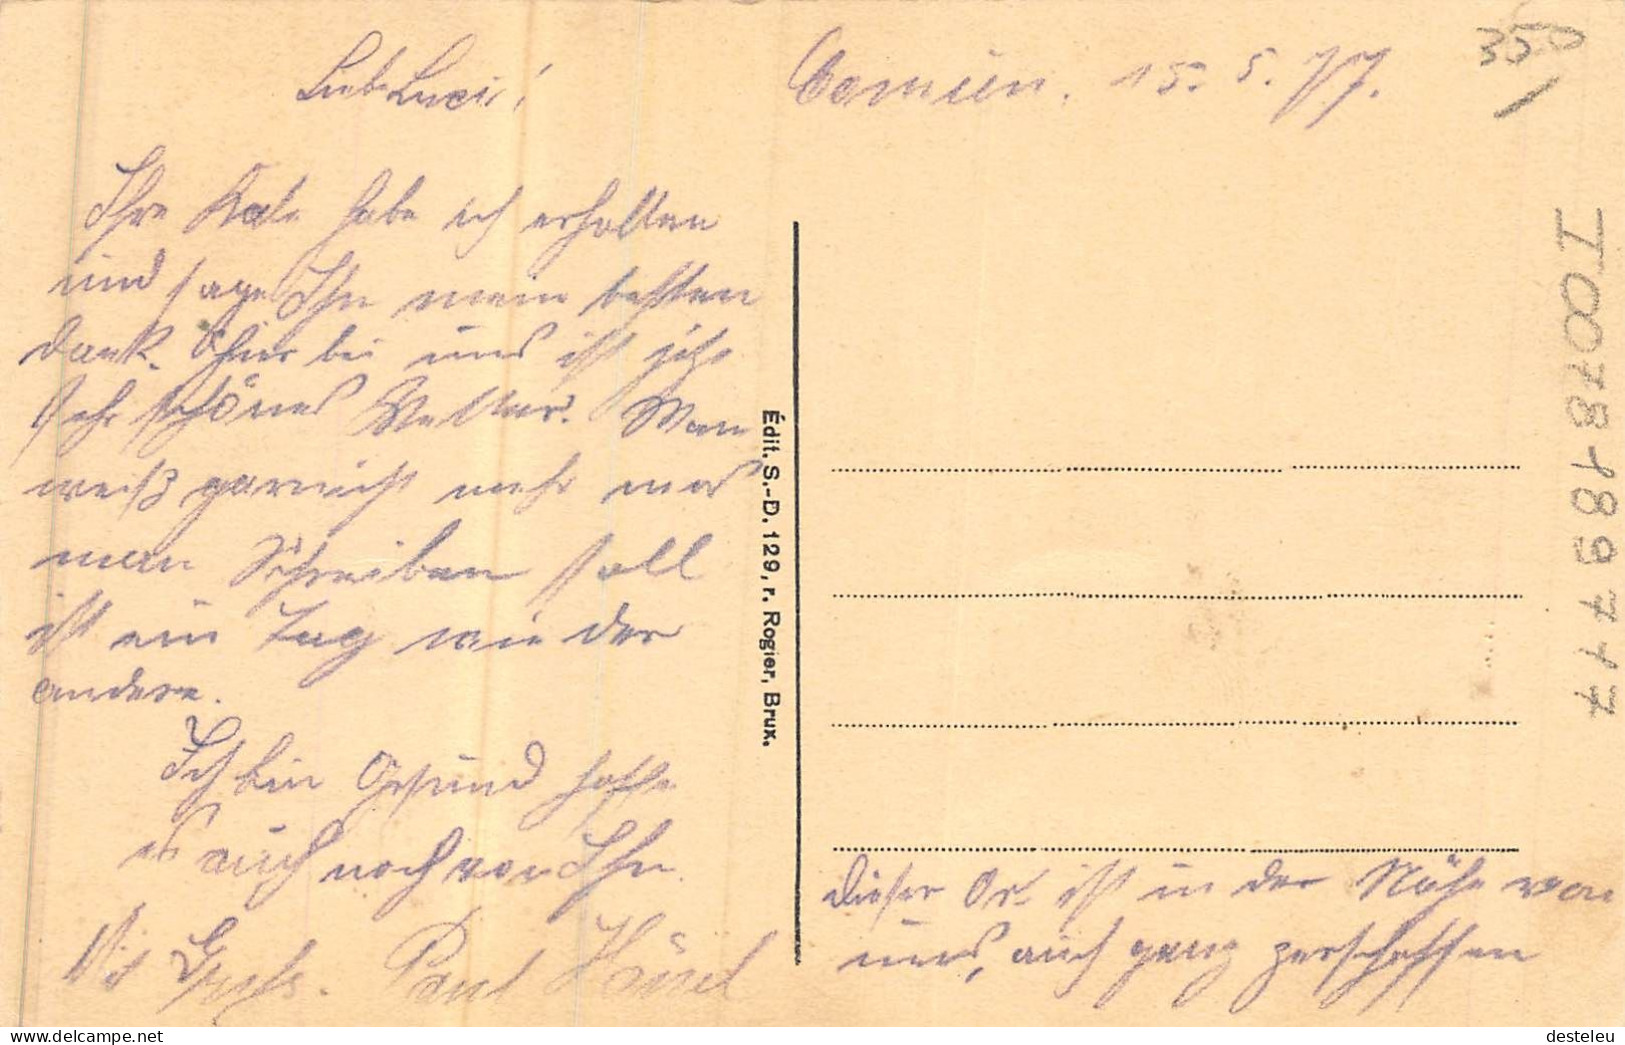 Lieb. Luci!
Ihre Kate habe ich erhalten
und sage Ihn mein besten
Dank. Hier bei uns ist jetz
sehr schönes Wetter. Man
weiß garnicht mehr was
man Schreiben soll
ist ein Tag wie der
andere.
Ich bin Gesund hoffe
es auch noch von Ihn.
Mit Gruß. Paul
Comien. 15. 5. 17.
350
TO0781897717
Édit. S.-D. 129, r. Rogier, Brux.
Dieser Or ist in der Nähe von
uns, auch ganz zerschossen
desteleu